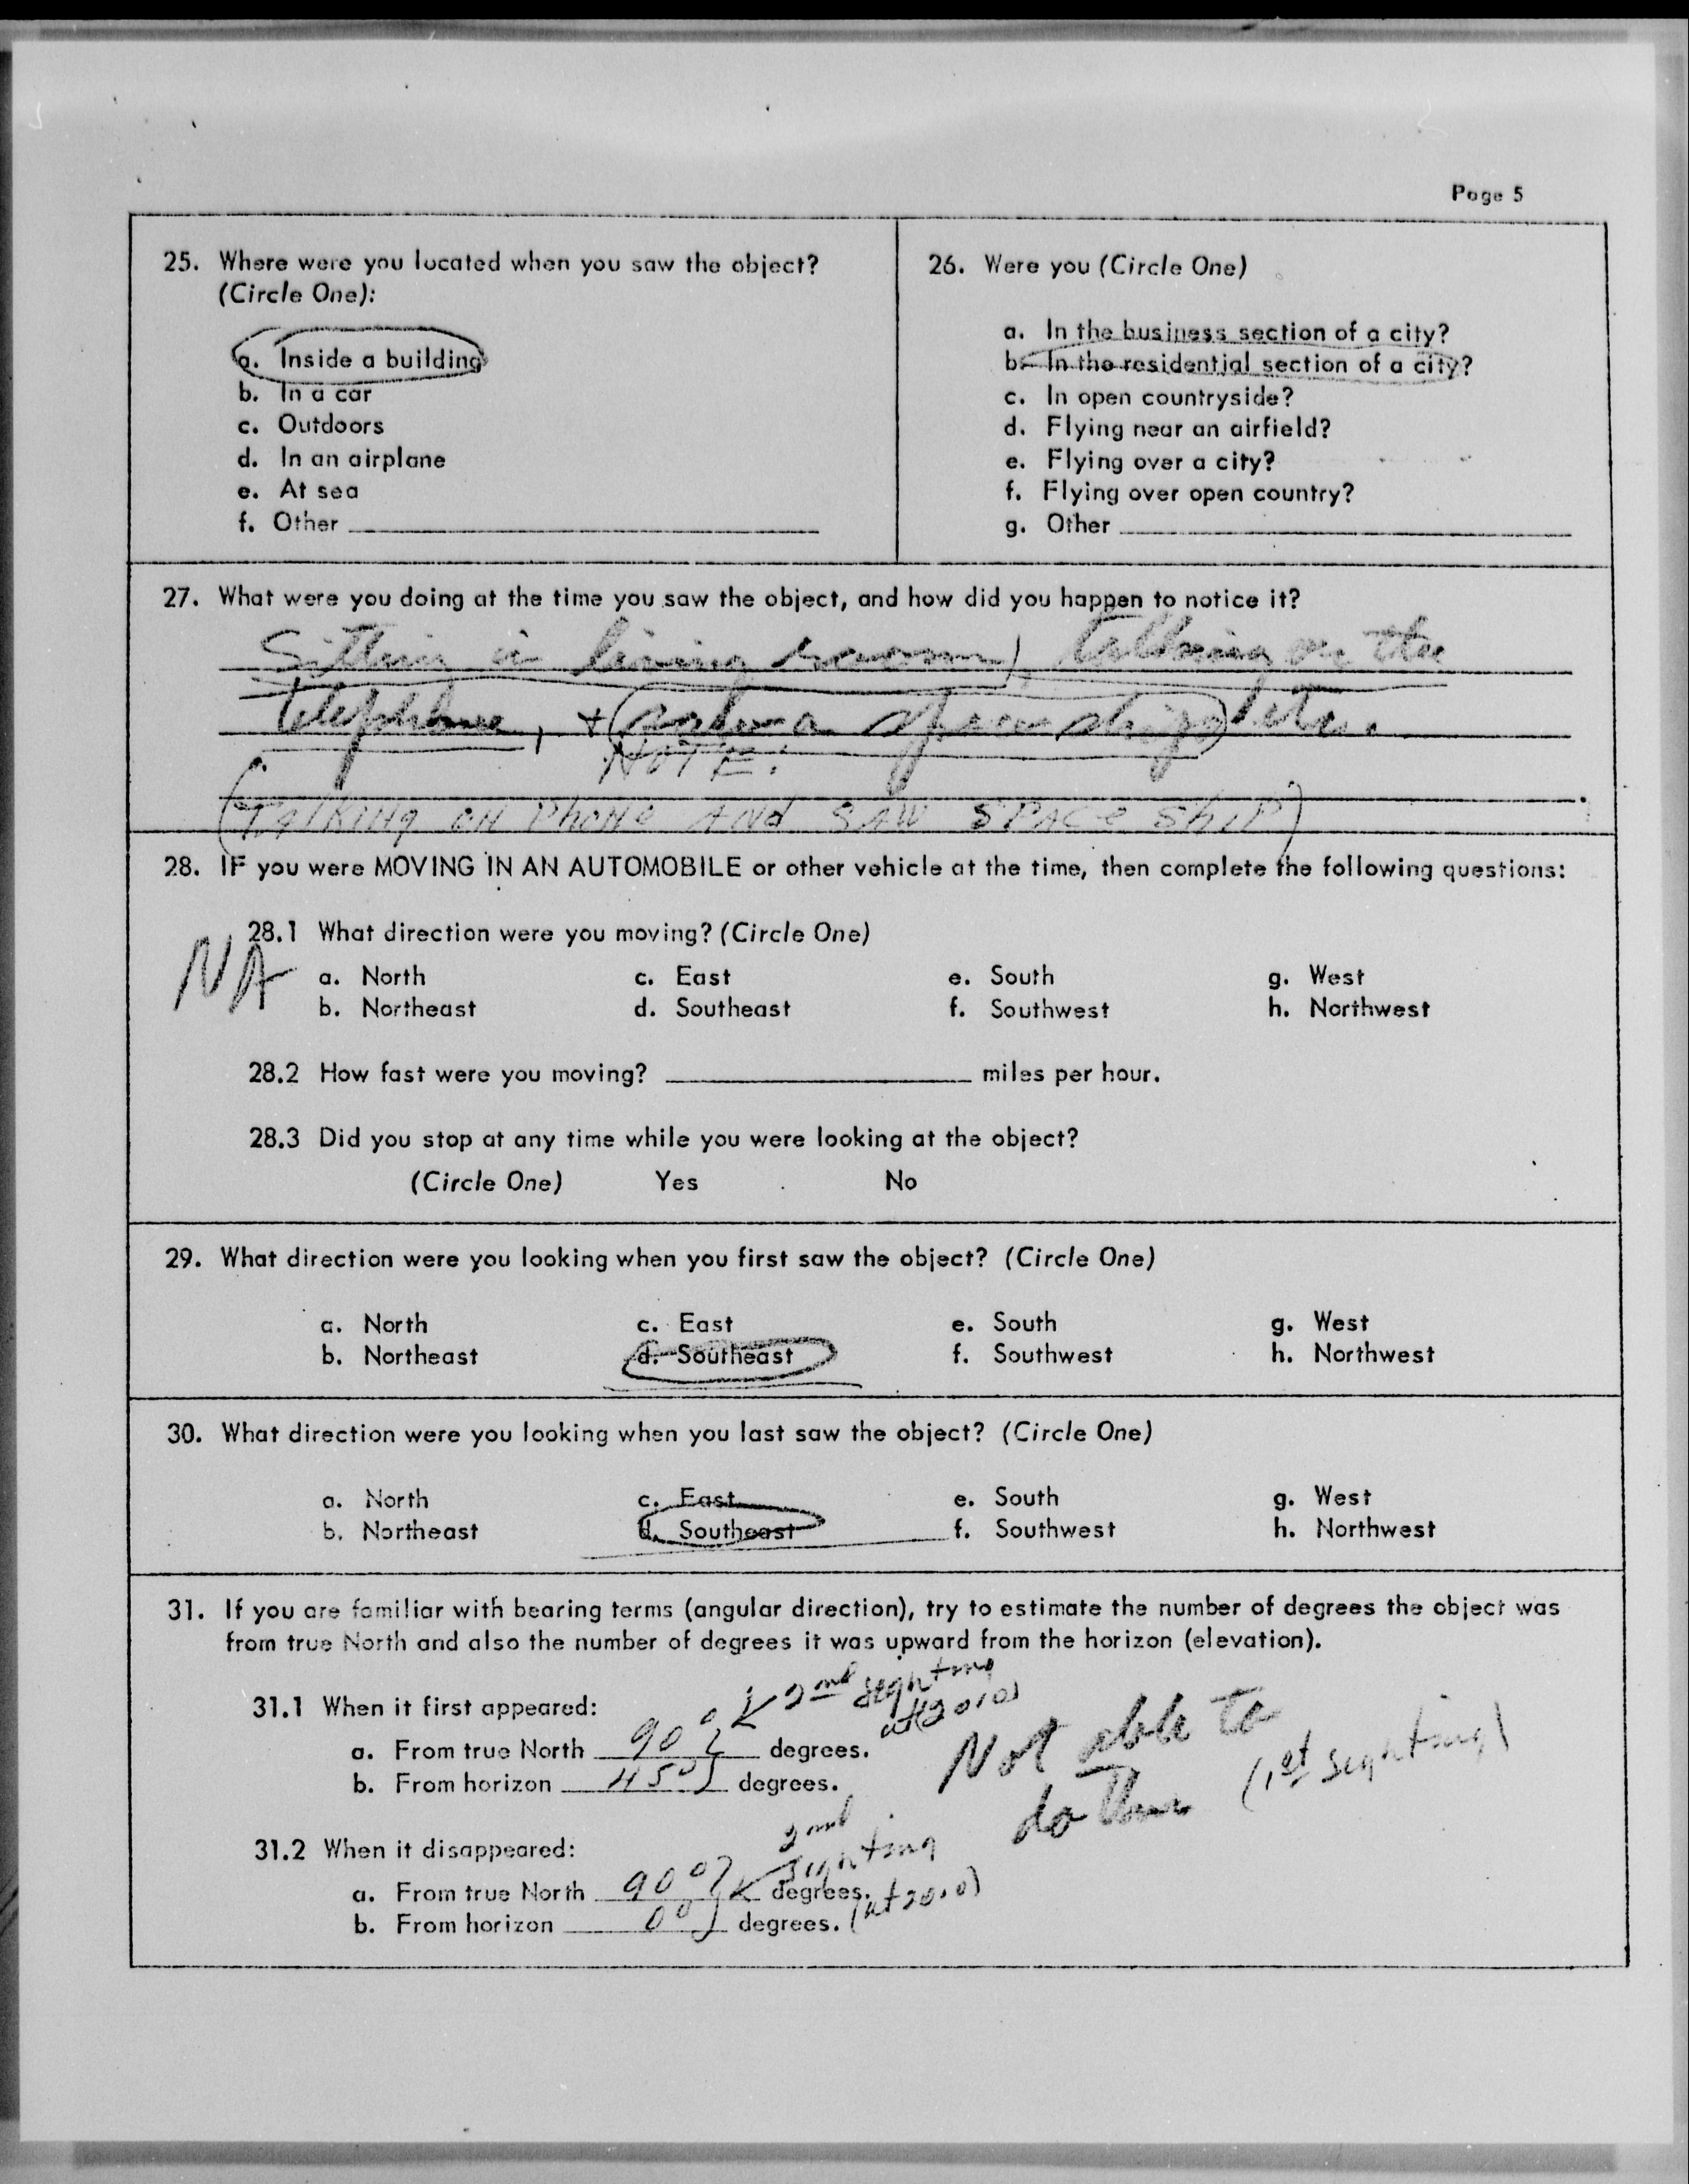 Page 5
25. Where were you located when you saw the object?
(Circle One):
a. Inside a building
b. In a car
c. Outdoors
d. In an airplane
e. At sea
f. Other
26. Were you (Circle One)
a. In the business section of a city?
b. In the residential section of a city?
c. In open countryside?
d. Flying near an airfield?
e. Flying over a city?
f. Flying over open country?
g. Other
27. What were you doing at the time you saw the object, and how did you happen to notice it?
Sitting in living room, talking on the
telephone, + a space ship
NOTE:
(TALKING ON PHONE AND SAW SPACE SHIP)
28. IF you were MOVING IN AN AUTOMOBILE or other vehicle at the time, then complete the following questions:
NA
28.1 What direction were you moving? (Circle One)
a. North c. East e. South g. West
b. Northeast d. Southeast f. Southwest h. Northwest
28.2 How fast were you moving? miles per hour.
28.3 Did you stop at any time while you were looking at the object?
(Circle One) Yes No
29. What direction were you looking when you first saw the object? (Circle One)
a. North c. East e. South g. West
b. Northeast d. Southeast f. Southwest h. Northwest
30. What direction were you looking when you last saw the object? (Circle One)
a. North c. East e. South g. West
b. Northeast d. Southeast f. Southwest h. Northwest
31. If you are familiar with bearing terms (angular direction), try to estimate the number of degrees the object was
from true North and also the number of degrees it was upward from the horizon (elevation).
31.1 When it first appeared:
2nd sighting
at (2010)
a. From true North 90° degrees.
b. From horizon 45° degrees.
Not able to
do this (1st sighting)
31.2 When it disappeared:
2nd
sighting
a. From true North 90° degrees.
b. From horizon 0° degrees. (at 2010)